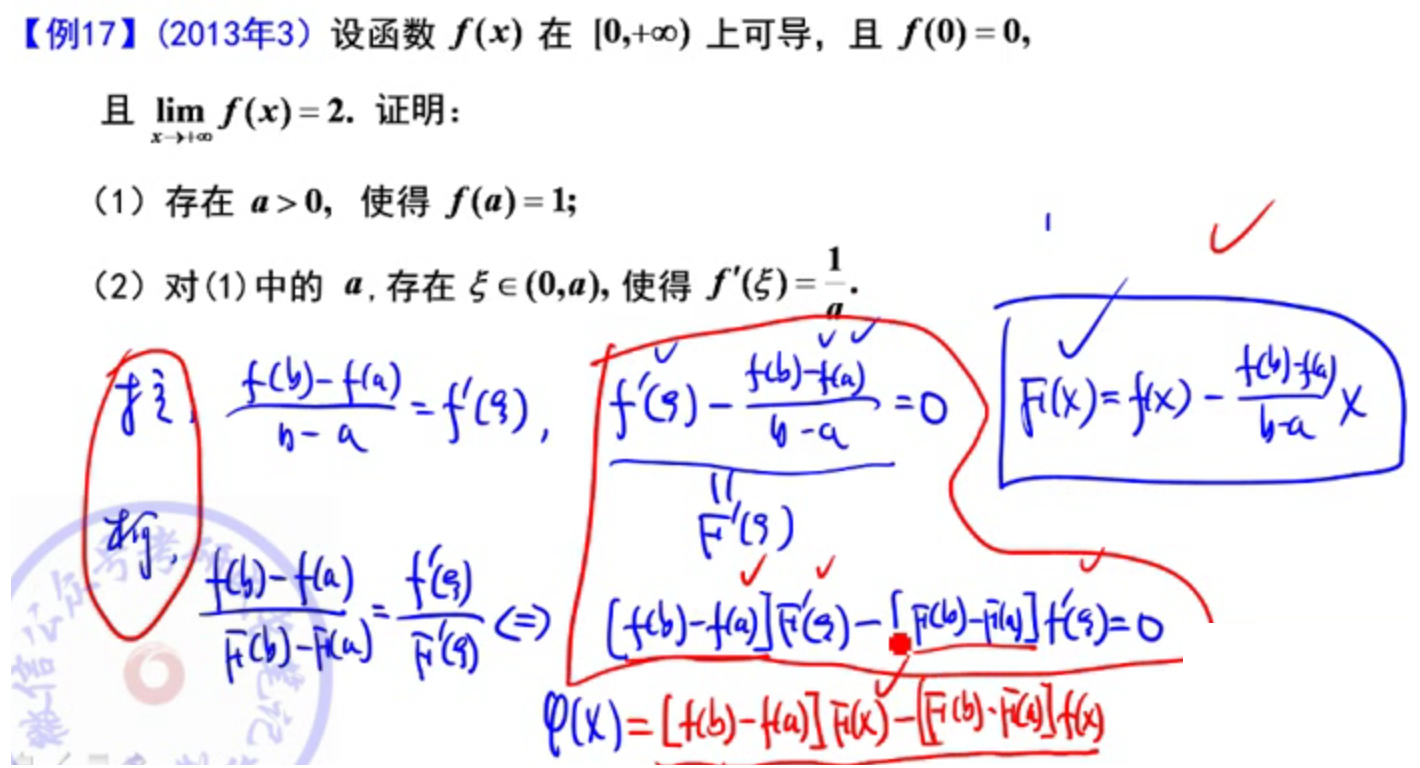 【例17】(2013年3) 设函数 f(x) 在 [0,+∞) 上可导，且 f(0) = 0,
且 lim_{x→+∞} f(x) = 2. 证明：
(1) 存在 a > 0, 使得 f(a) = 1;
(2) 对(1)中的 a, 存在 ξ ∈ (0,a), 使得 f′(ξ) = 1/a.
拉, (f(b)-f(a))/(b-a) = f′(ξ), f′(ξ) - (f(b)-f(a))/(b-a) = 0 F(x) = f(x) - (f(b)-f(a))/(b-a) x
|| F′(ξ)
柯, (f(b)-f(a))/(F(b)-F(a)) = f′(ξ)/F′(ξ) <=> [f(b)-f(a)]F′(ξ) - [F(b)-F(a)]f′(ξ) = 0
φ(x) = [f(b)-f(a)]F(x) - [F(b)-F(a)]f(x)